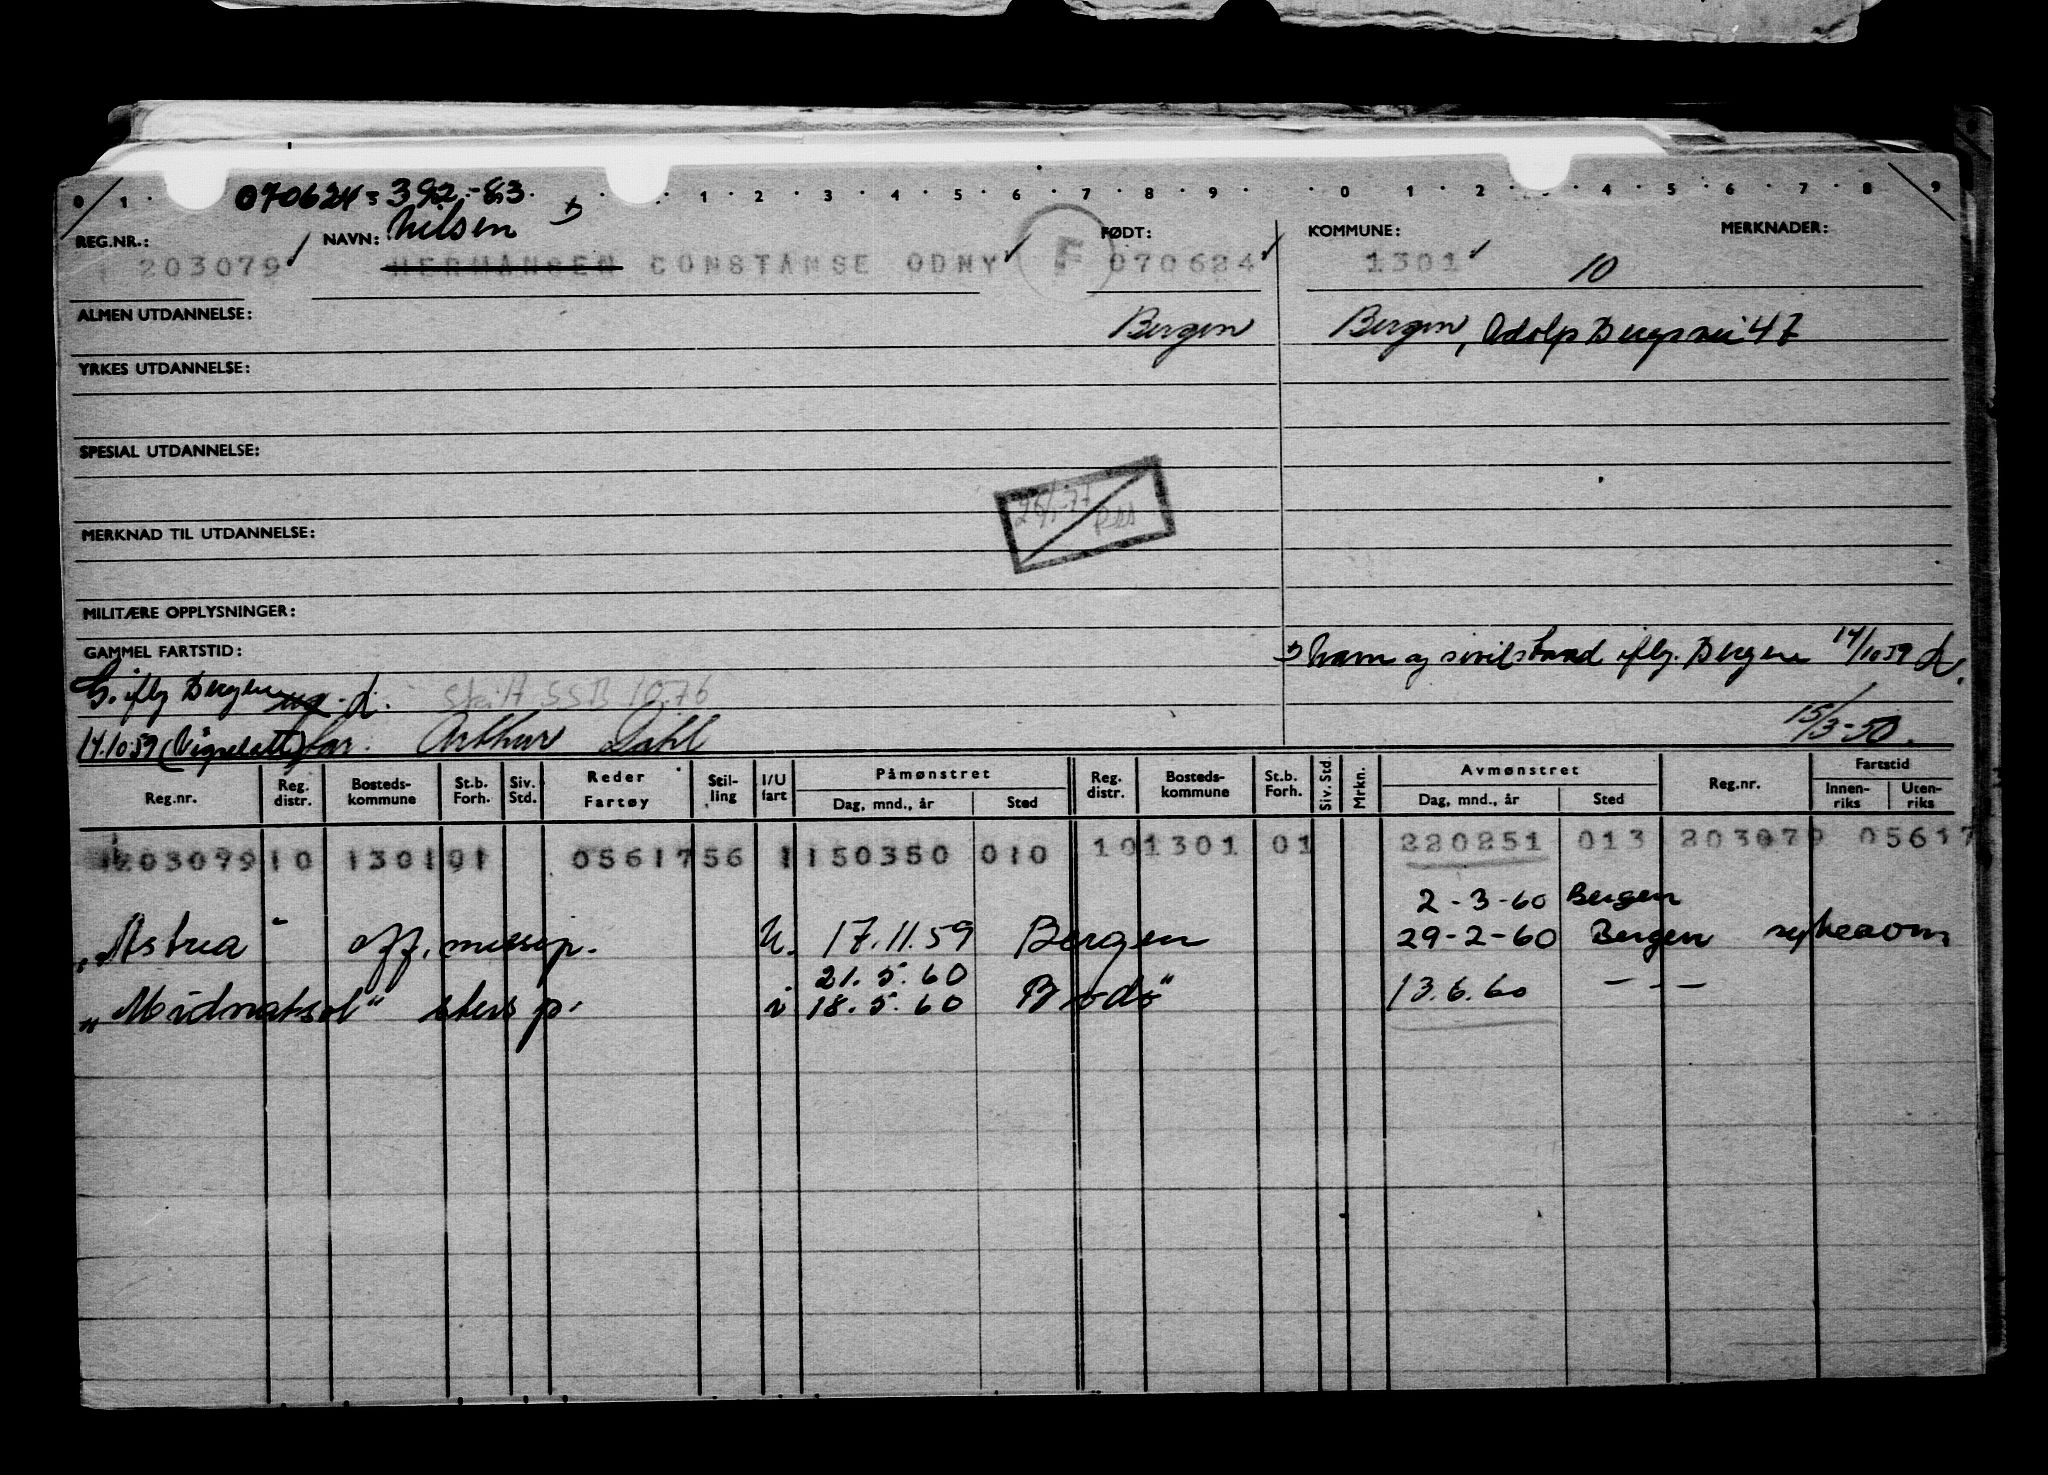 0 1 070624-392-83 1 2 3 4 5 6 7 8 9 0 1 2 3 4 5 6 7 8 9
REG.NR.: NAVN: Nilsen FØDT: KOMMUNE: MERKNADER:
203079 HERMANSEN CONSTANSE ODNY F 070624 1301 10
ALMEN UTDANNELSE: Bergen Bergen, Adolp Bergsvei 47
YRKES UTDANNELSE:
SPESIAL UTDANNELSE:
26/1-77
MERKNAD TIL UTDANNELSE:
MILITÆRE OPPLYSNINGER:
GAMMEL FARTSTID: navn og sivilstand iflg. Bergen 14/10 59
G. iflg Bergen skilt SSB 10.76
14.10.59 (Vigselatt) far. Arthur Dahl 15/3-50.
Reg.nr. Reg. distr. Bosteds-kommune St.b. Forh. Siv. Std. Reder Fartøy Stil-ling I/U fart Påmønstret Dag, mnd., år Sted Reg. distr. Bosteds-kommune St.b. Forh. Siv. Std. Mrkn. Avmønstret Dag, mnd., år Sted Reg.nr. Fartstid Innen-riks Uten-riks
203079 10 1301 01 05617 56 1 150350 010 10 1301 01 220251 013 203079 05617
2-3-60 Bergen
"Astrea" off. messep. U. 17.11.59 Bergen 29-2-60 Bergen
21.5.60
"Midnatsol" sters p. i 18.5.60 Bodø 13.6.60 - - -